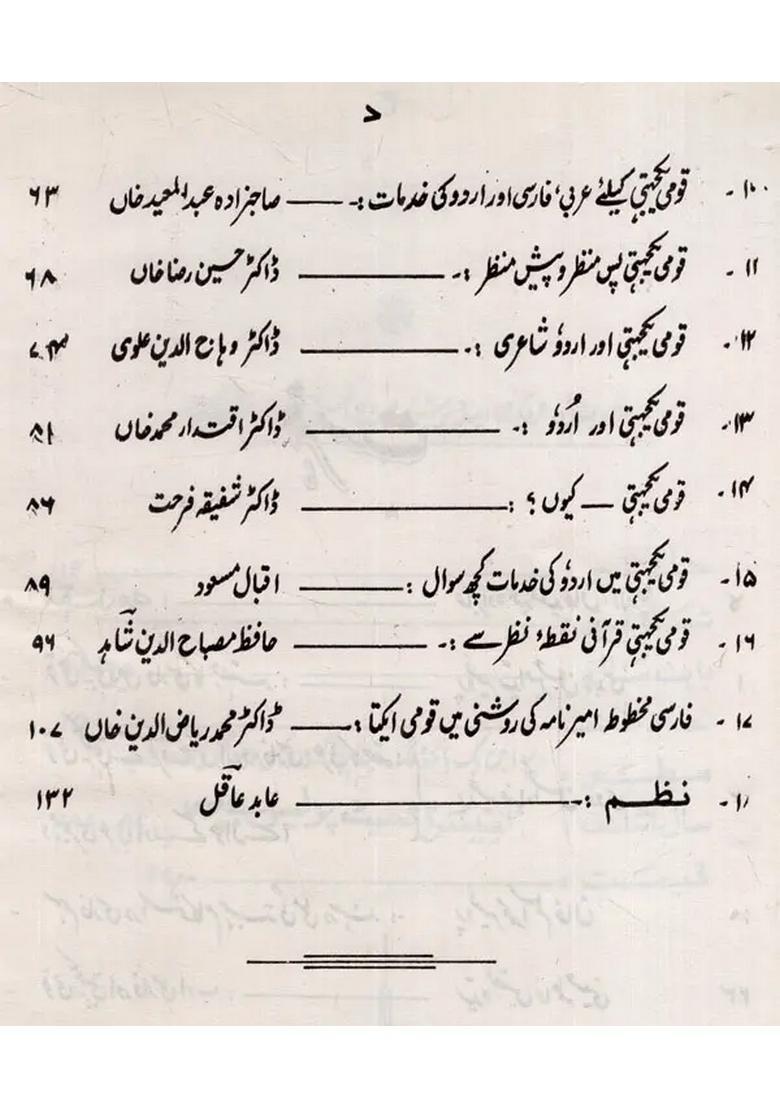 ۷
۱۰- قومی یکجہتی کیلئے عربی، فارسی اور اردو کی خدمات :- —— صاحبزادہ عبدالمعید خاں ۶۳
۱۱- قومی یکجہتی پس منظر و پیش منظر :- —— ڈاکٹر حسین رضا خاں ۶۸
۱۲- قومی یکجہتی اور اردو شاعری :- —— ڈاکٹر وہاج الدین علوی ۷۴
۱۳- قومی یکجہتی اور اُردو :- —— ڈاکٹر اقتدار محمد خاں ۸۱
۱۴- قومی یکجہتی — کیوں؟ : —— ڈاکٹر شفیقہ فرحت ۸۶
۱۵- قومی یکجہتی میں اردو کی خدمات کچھ سوال : —— اقبال مسعود ۸۹
۱۶- قومی یکجہتی قرآنی نقطۂ نظر سے :- —— حافظ مصباح الدین شاہد ۹۶
۱۷- فارسی مخطوطہ امیر نامہ کی روشنی میں قومی ایکتا :- —— ڈاکٹر محمد ریاض الدین خاں ۱۰۷
نظم :- —— عابد عاقل ۱۳۲